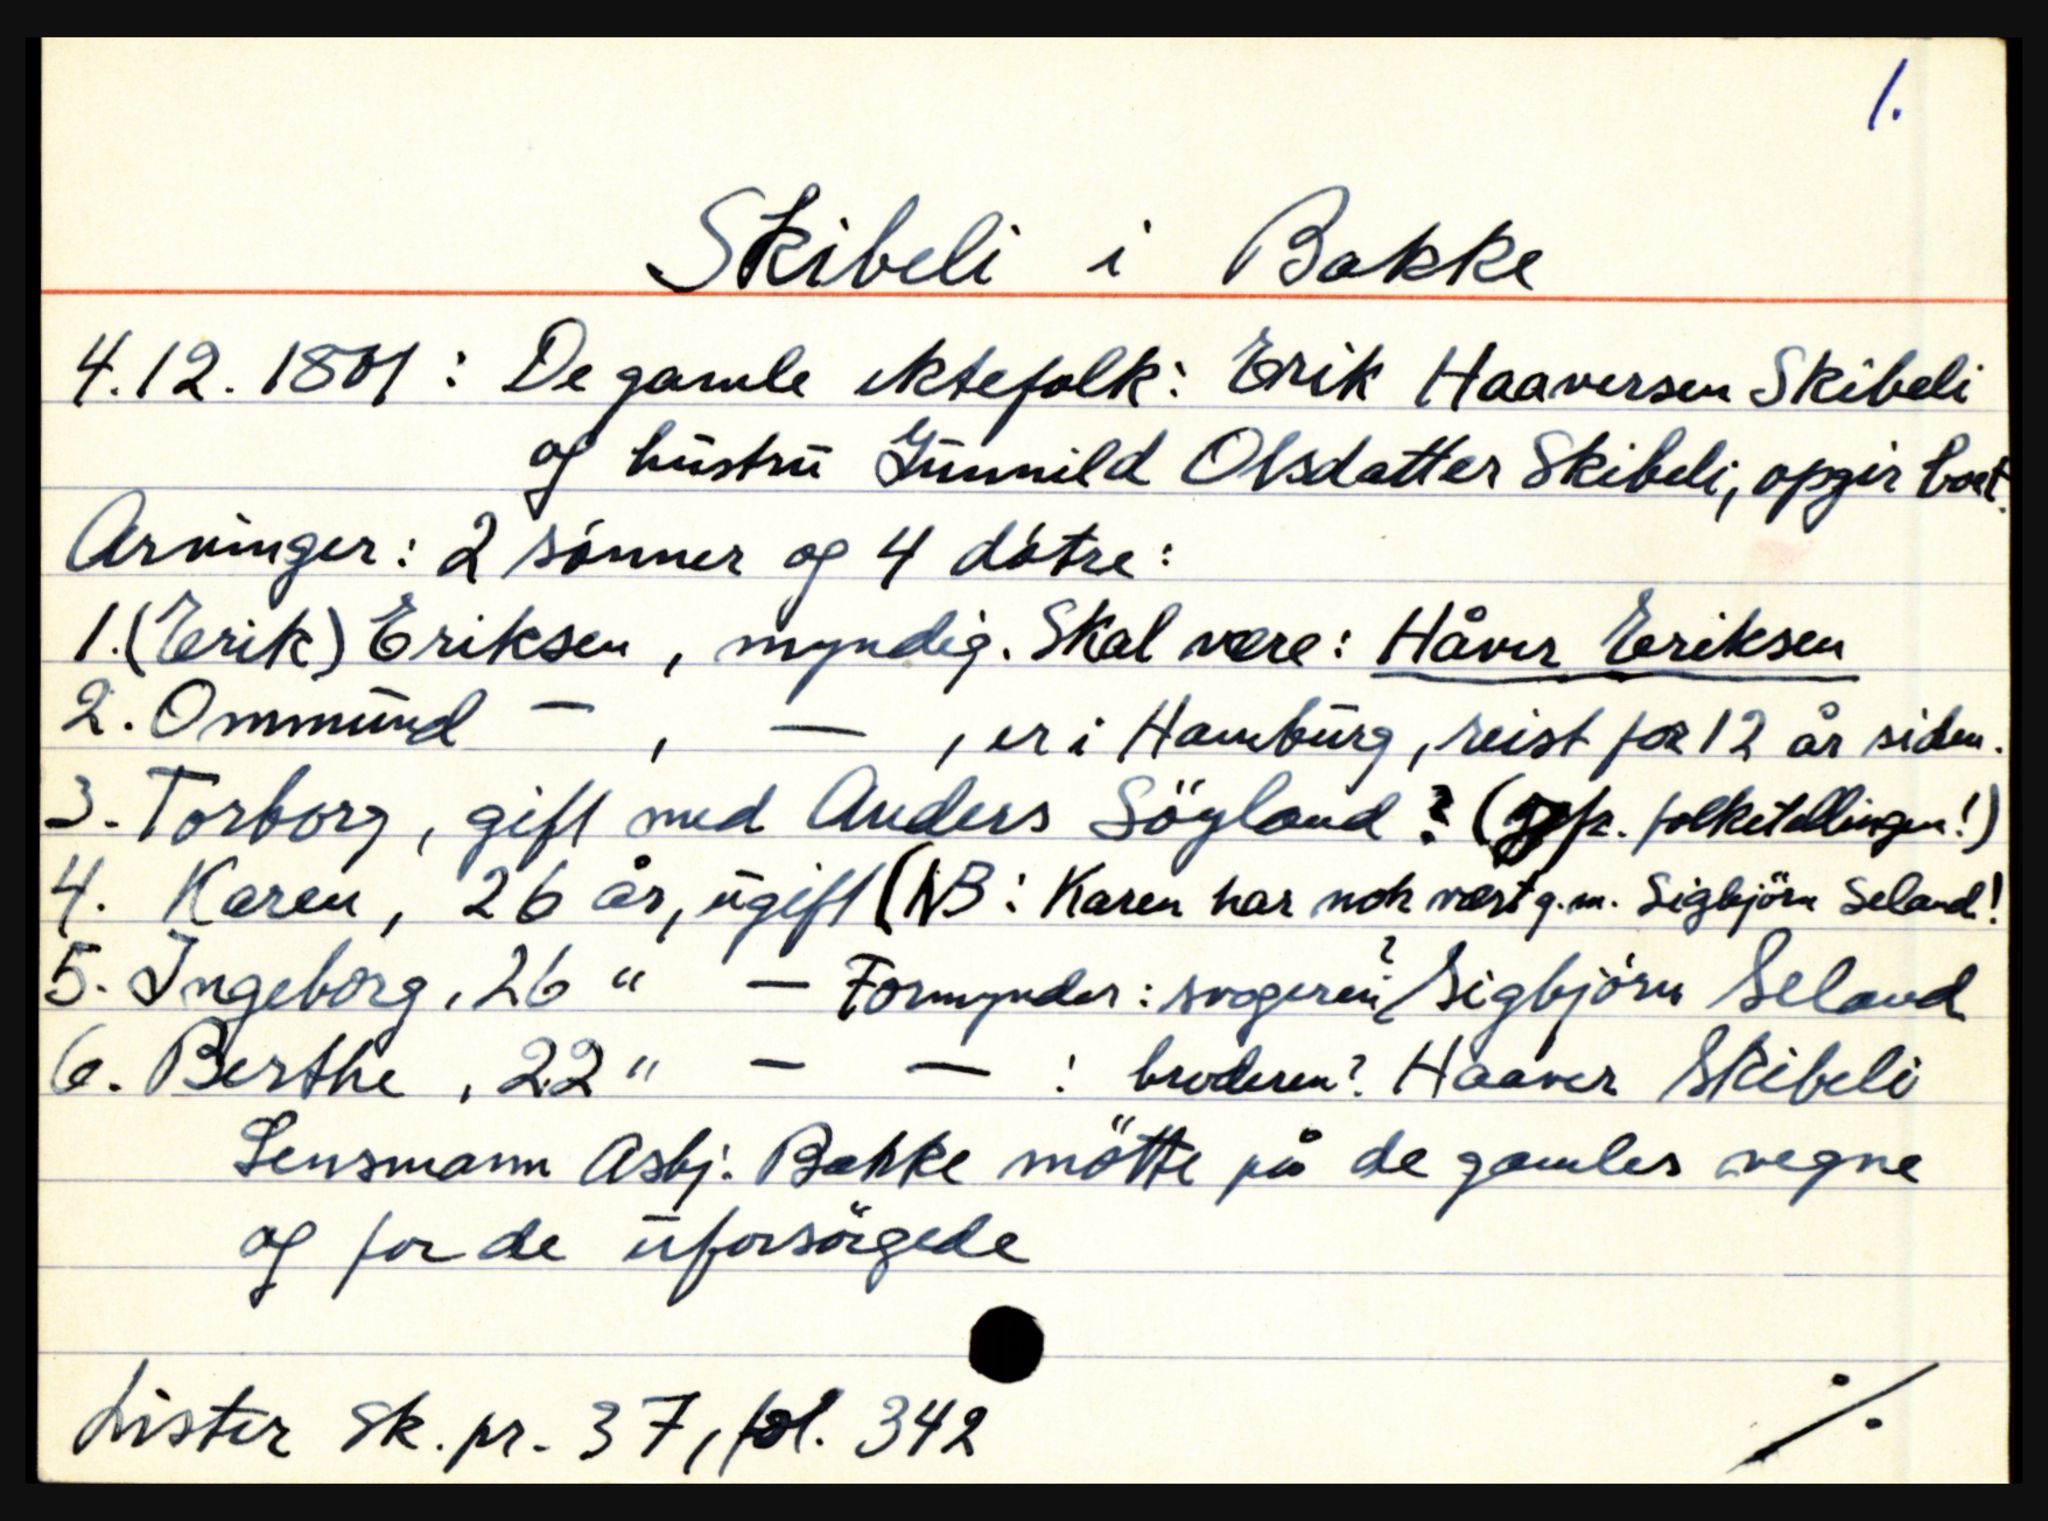 1.
Skibeli i Bakke
4.12.1801: De gamle ektefolk: Erik Haaversen Skibeli
og hustru Gunnild Olsdatter Skibeli, opgir boet.
Arvinger: 2 sønner og 4 døtre:
1. (Erik) Eriksen, myndig. Skal være: Håver Eriksen
2. Ommund — , — , er i Hamburg, reist for 12 år siden.
3. Torborg, gift med Anders Söyland? ( folketellingen!)
4. Karen, 26 år, ugift (NB: Karen har nok vært g.m. Sigbjörn Seland!
5. Ingeborg, 26 " — Formynder: svogeren? Sigbjörn Seland
6. Berthe, 22 " — — : broderen? Haaver Skibeli
Lensmann Asbj. Bakke mötte på de gamles vegne
og for de uforsörgede
Lister Sk. pr. 37, fol. 342
./.